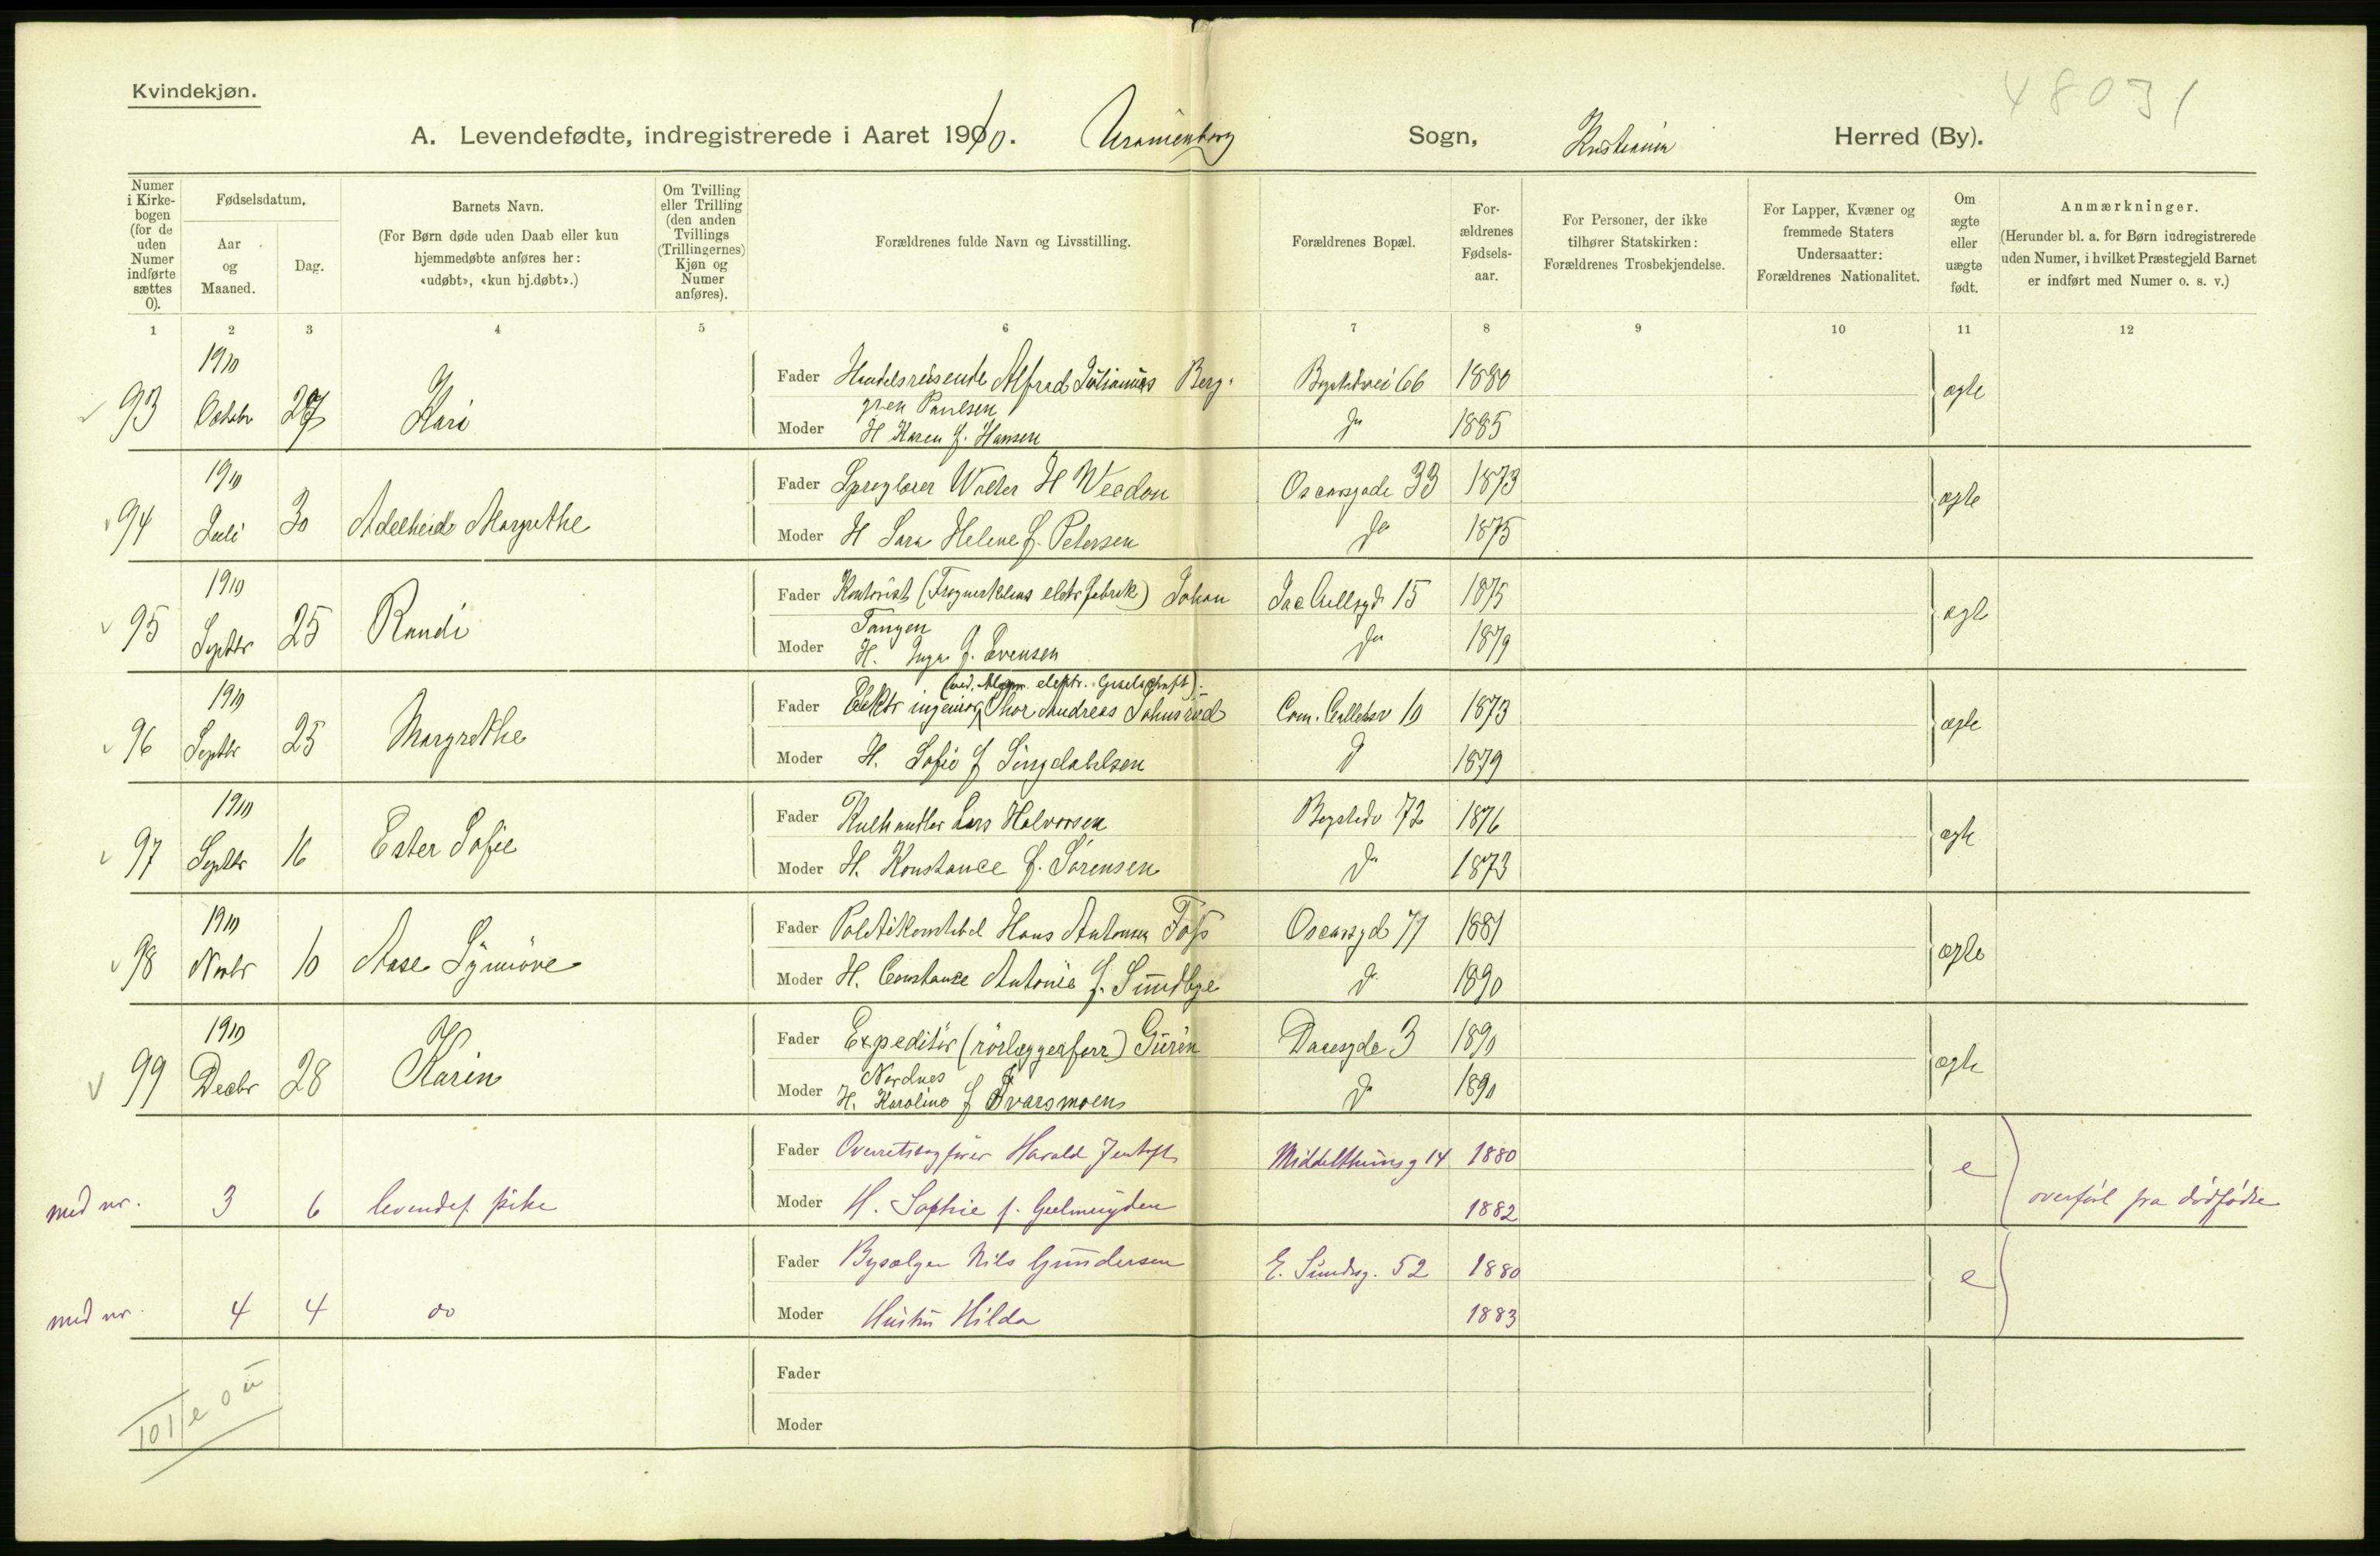 48031
Kvindekjøn.
A. Levendefødte, indregistrerede i Aaret 1910. Uranienborg Sogn, Kristiania Herred (By).
Numer i Kirkebogen (for de uden Numer indførte sættes 0).
Fødselsdatum.
Aar og Maaned.
Dag.
Barnets Navn.
(For Børn døde uden Daab eller kun hjemmedøbte anføres her: «udøbt», «kun hj.døbt».)
Om Tvilling eller Trilling (den anden Tvillings (Trillingernes) Kjøn og Numer anføres).
Forældrenes fulde Navn og Livsstilling.
Forældrenes Bopæl.
Forældrenes Fødselsaar.
For Personer, der ikke tilhører Statskirken: Forældrenes Trosbekjendelse.
For Lapper, Kvæner og fremmede Staters Undersaatter: Forældrenes Nationalitet.
Om ægte eller uægte født.
Anmærkninger.
(Herunder bl. a. for Børn indregistrerede uden Numer, i hvilket Præstegjeld Barnet er indført med Numer o. s. v.)
1 2 3 4 5 6 7 8 9 10 11 12
93 1910 Octobr 27 Kari
Fader Handelsreisende Alfred Julianus Berggren Paulsen Bogstadvei 66 1880 ægte
Moder H Karen f. Hansen do 1885
94 1910 Juli 30 Adelheid Margrethe
Fader Sproglærer Walter H Weedon Oscarsgade 33 1873 ægte
Moder H Sara Helene f. Petersen do 1875
95 1910 Septbr 25 Randi
Fader Kontorist (Frognerkilens elektr fabrik) Johan Tangen Jac Aallsgd 15 1875 ægte
Moder H. Inga f. Evensen do 1879
96 1910 Septbr 25 Margrethe
(ved. Algem. elektr. Geselschaft)
Fader Elektr ingeniør Thor Andreas Johnsrud Com. 10 1873 ægte
Moder H. Sofie f Singdahlsen d 1879
97 1910 Septbr 16 Ester Sofie
Fader Kulhandler Lars Halvorsen Bogstadv 72 1876 ægte
Moder H. Konstance f. Sørensen do 1873
98 1910 Novbr 10 Aase Synnøve
Fader Politikonstabel Hans Antonsen Foss Oscarsgd 71 1881 ægte
Moder H. Constance Antonie f. Sundbye d 1890
99 1910 Decbr 28 Karin
Fader Expeditør (rørlæggerforr) Gurin Nordnes Daasgde 3 1890 ægte
Moder H. Karoline f Ivarsmoen do 1890
med nr. 3 6 levendef. pike
Fader Overretssagfører Harald Jentoft Middelthunsg 14 1880 e
Moder H. Sophie f. Geelmuyden 1882
overført fra dødfødte
med nr. 4 4 do
Fader Bysælger Nils Gundersen E. Sundsg. 52 1880 e
Moder Hustru Hilda 1883
Fader
Moder
101 e 0 u